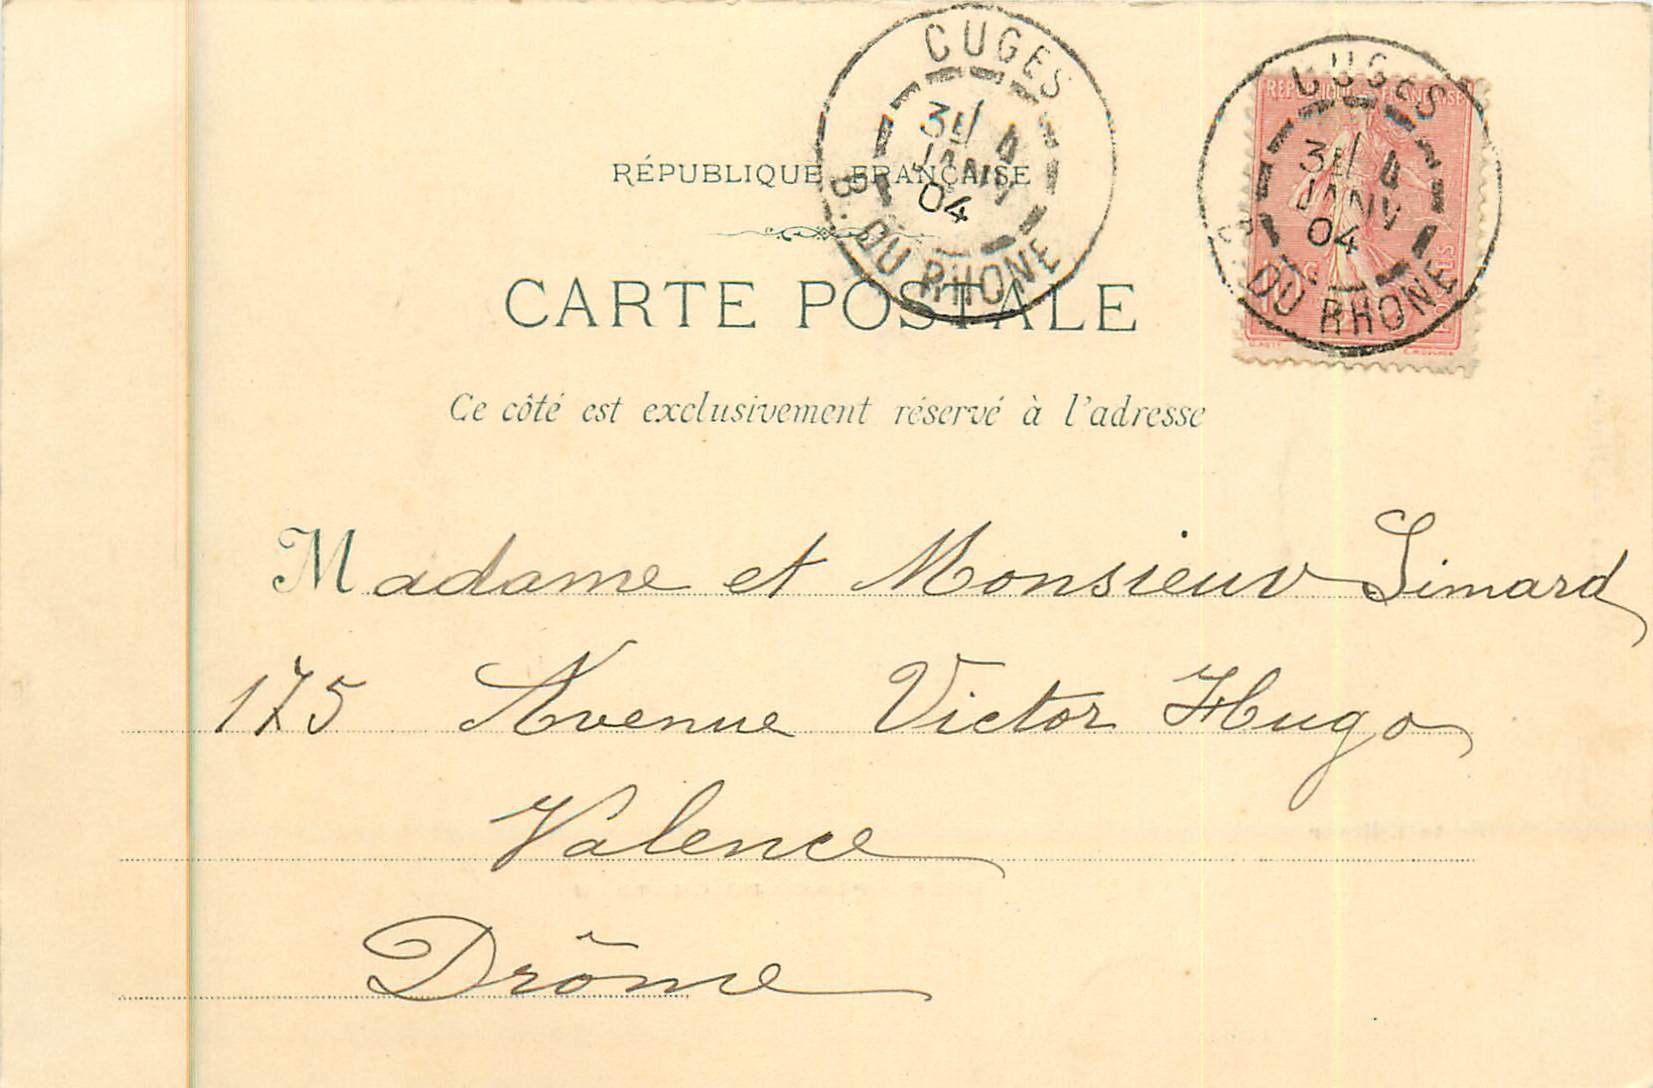 CUGES
3E 4
JANV
04
B. DU RHONE
CUGES
3E 4
JANV
04
B. DU RHONE
REPUBLIQUE FRANÇAISE
RÉPUBLIQUE FRANÇAISE
CARTE POSTALE
Ce côté est exclusivement réservé à l'adresse
Madame et Monsieur Simard
175 Avenue Victor Hugo
Valence
Drôme